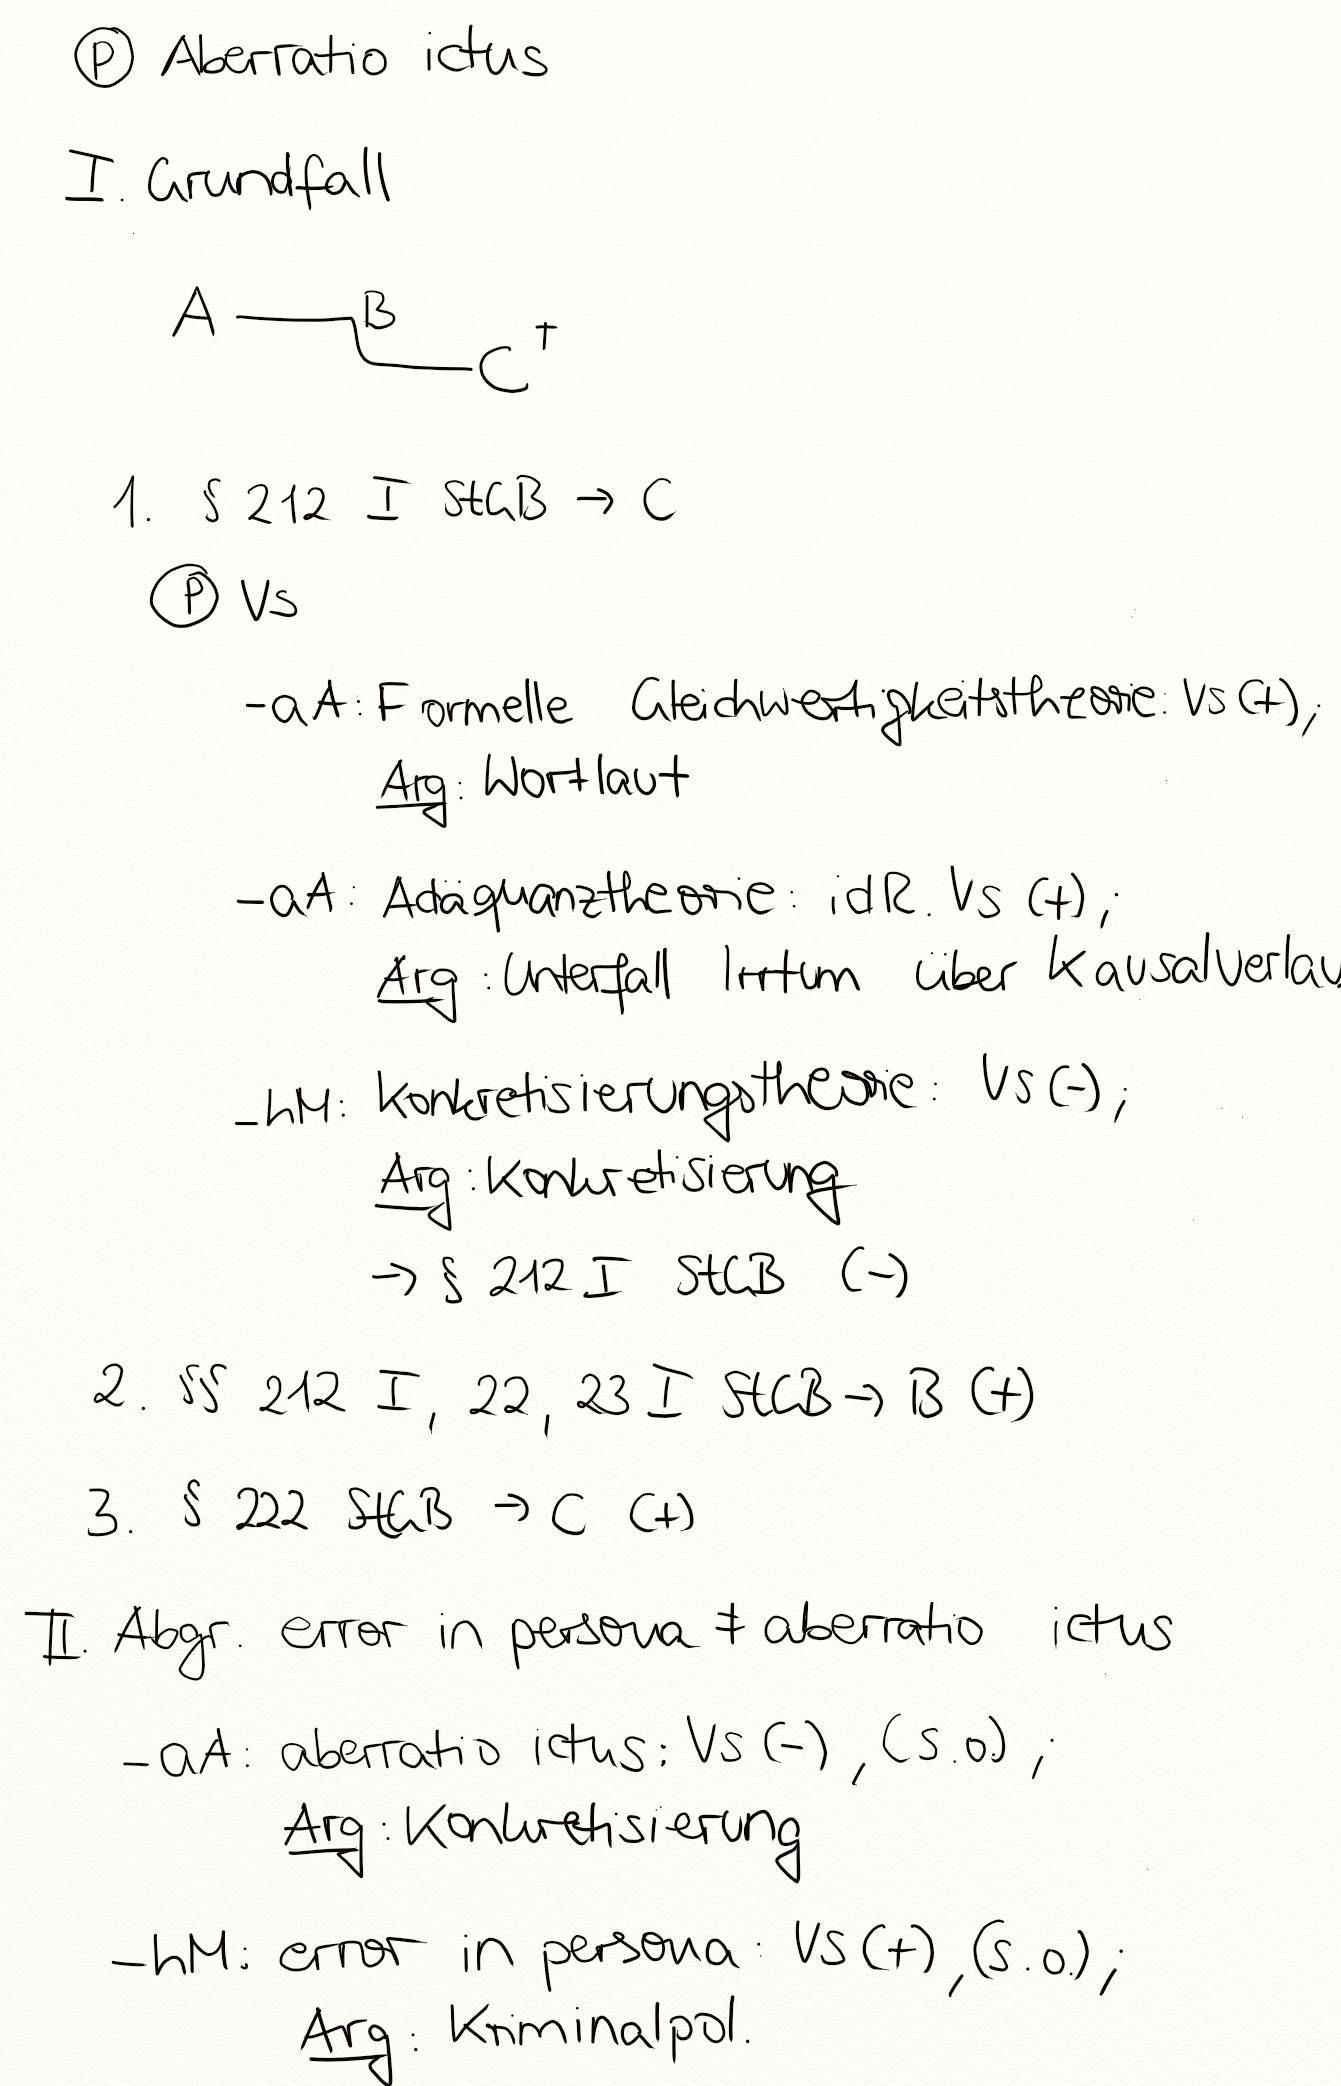 Ⓟ Aberratio ictus
I. Grundfall
A B
C †
1. § 212 I StGB → C
Ⓟ Vs
- aA: Formelle Gleichwertigkeitstheorie: Vs (+);
Arg: Wortlaut
- aA: Adäquanztheorie: idR. Vs (+);
Arg: Unterfall Irrtum über Kausalverlau
- hM: Konkretisierungstheorie: Vs (-);
Arg: Konkretisierung
→ § 212 I StGB (-)
2. §§ 212 I, 22, 23 I StGB → B (+)
3. § 222 StGB → C (+)
II. Abgr. error in persona ≠ aberratio ictus
- aA: aberratio ictus: Vs (-), (s.o.);
Arg: Konkretisierung
- hM: error in persona: Vs (+), (s.o.);
Arg: Kriminalpol.